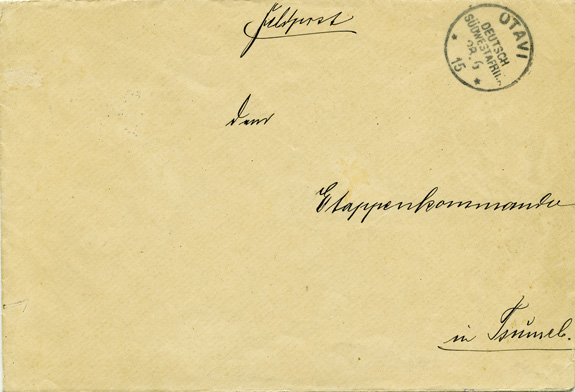 Feldpost
OTAVI
DEUTSCH
SÜDWESTAFRIKA
28.6
15
dem
Etappenkommando
in Tsumeb.